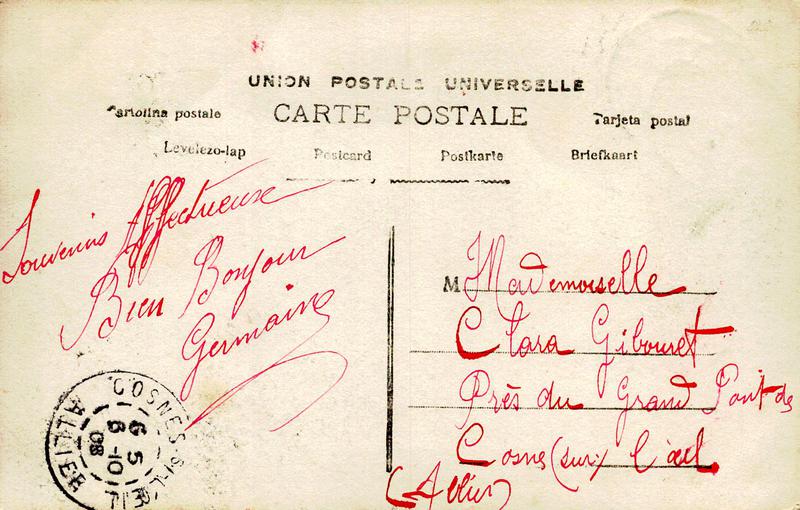 UNION POSTALE UNIVERSELLE
Cartolina postale CARTE POSTALE Tarjeta postal
Levelezo-lap Postcard Postkarte Briefkaart
Souvenirs Affectueux
Bien Bonjour
Germaine
M Mademoiselle
Clara Gibouret
Près du Grand Pont de
Cosne (sur) l'œil
(Allier)
COSNES-S-L'
6 5
6-10
08
ALLIER